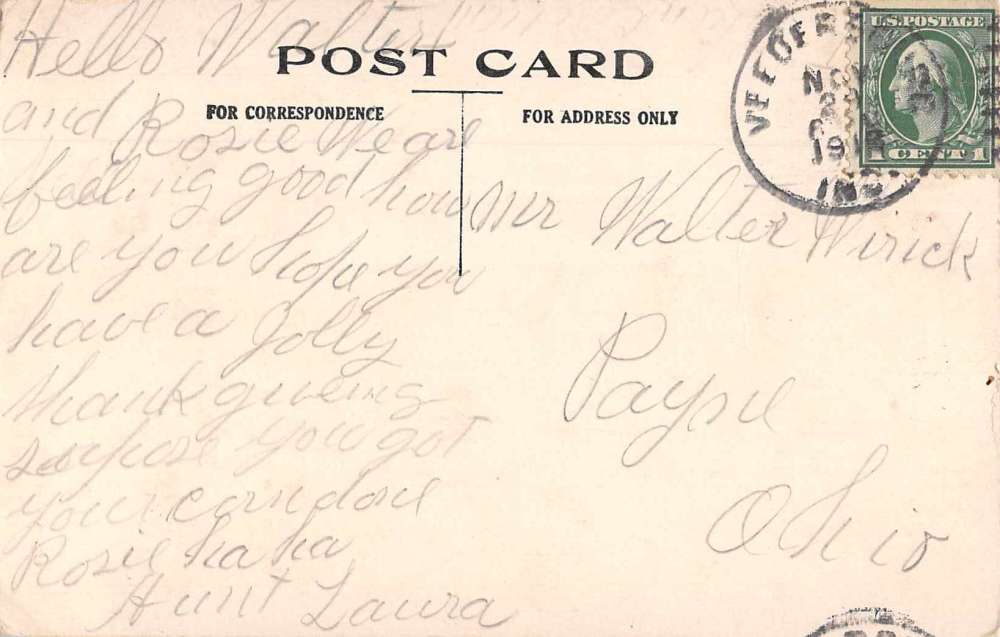 POST CARD
FOR CORRESPONDENCE
FOR ADDRESS ONLY
U.S. POSTAGE
1 CENT 1
NOV
IND
Hello Walter
and Rosie We are
feeling good how
are you hope you
have a Jolly
thanksgiveing
supose you got
your corn done
Rosie ha ha
Aunt Laura
Mr Walter Wirick
Payne
Ohio